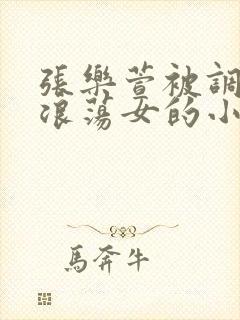 張樂萱被調
浪蕩女的小
馬奔牛